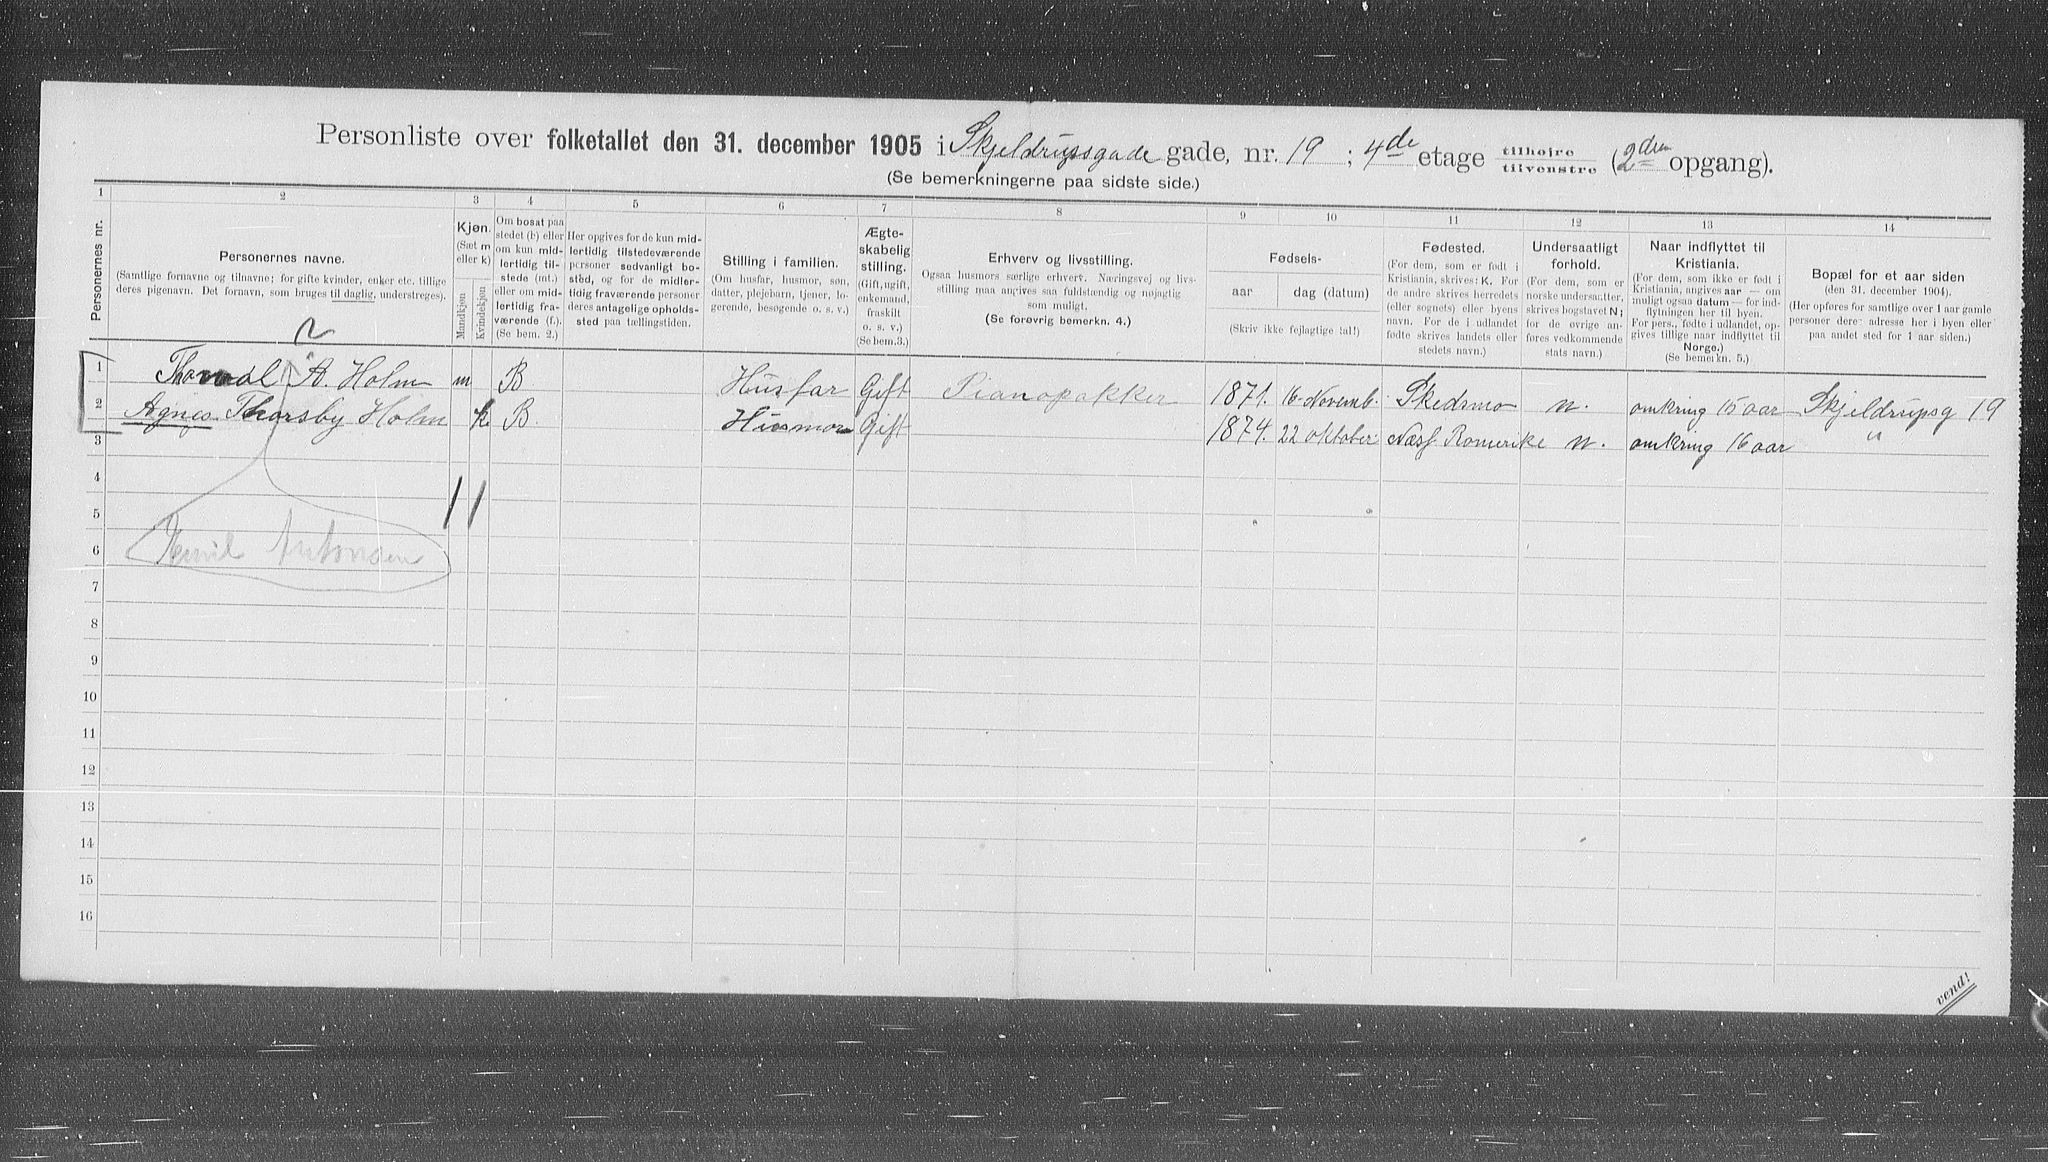 Personliste over folketallet den 31. december 1905 i Skjeldrupsgade gade, nr. 19 ; 4de etage tilhøire tilvenstre (2den opgang).
(Se bemerkningerne paa sidste side.)
1 2 3 4 5 6 7 8 9 10 11 12 13 14
Personernes nr.
Personernes navne.
(Samtlige fornavne og tilnavne; for gifte kvinder, enker etc. tillige
deres pigenavn. Det fornavn, som bruges til daglig, understreges).
Kjøn.
(Sæt m
eller k)
Mandkjøn
Kvindekjøn
Om bosat paa
stedet (b) eller
om kun mid-
lertidig til-
stede (mt.)
eller om mid-
lertidig fra-
værende (f.).
(Se bem. 2.)
Her opgives for de kun mid-
lertidig tilstedeværende
personer sedvanligt bo-
sted, og for de midler-
tidig fraværende personer
deres antagelige opholds-
sted paa tællingstiden.
Stilling i familien.
(Om husfar, husmor, søn,
datter, plejebarn, tjener, lo-
gerende, besøgende o. s. v.)
Ægte-
skabelig
stilling.
(Gift, ugift,
enkemand,
fraskilt
o. s. v.)
(Se bem.3.)
Erhverv og livsstilling.
Ogsaa husmors særlige erhverv. Næringsvej og livs-
stilling maa angives saa fuldstændig og nøjagtig
som muligt.
(Se forøvrig bemerkn. 4.)
Fødsels-
aar
dag (datum)
(Skriv ikke fejlagtige tal!)
Fødested.
(For dem, som er født i
Kristiania, skrives: K. For
de andre skrives herredets
(eller sognets) eller byens
navn. For de i udlandet
fødte skrives landets eller
stedets navn.)
Undersaatligt
forhold.
(For dem, som er
norske undersaatter,
skrives bogstavet N;
for de øvrige an-
føres vedkommende
stats navn.)
Naar indflyttet til
Kristiania.
(For dem, som ikke er født i
Kristiania, angives aar — om
muligt ogsaa datum — for ind-
flytningen her til byen.
For pers., fødte i udlandet, op-
gives tillige naar indflyttet til
Norge.)
(Se bemerkn. 5.)
Bopæl for et aar siden
(den 31. december 1904).
(Her opføres for samtlige over 1 aar gamle
personer deres adresse her i byen eller
paa andet sted for 1 aar siden.)
2
1 A. Holm m B Husfar Gift Pianopakker 1871. 16 Novemb. Skedsmo n. omkring 15 aar Skjeldrupsg 19
2 Agnes Thorsby Holm k B. Husmor Gift 1874. 22 oktober Næs Romerike n. omkring 16 aar "
3
4
1 1
5
6 Antonsen
7
8
9
10
11
12
13
14
15
16
vend!